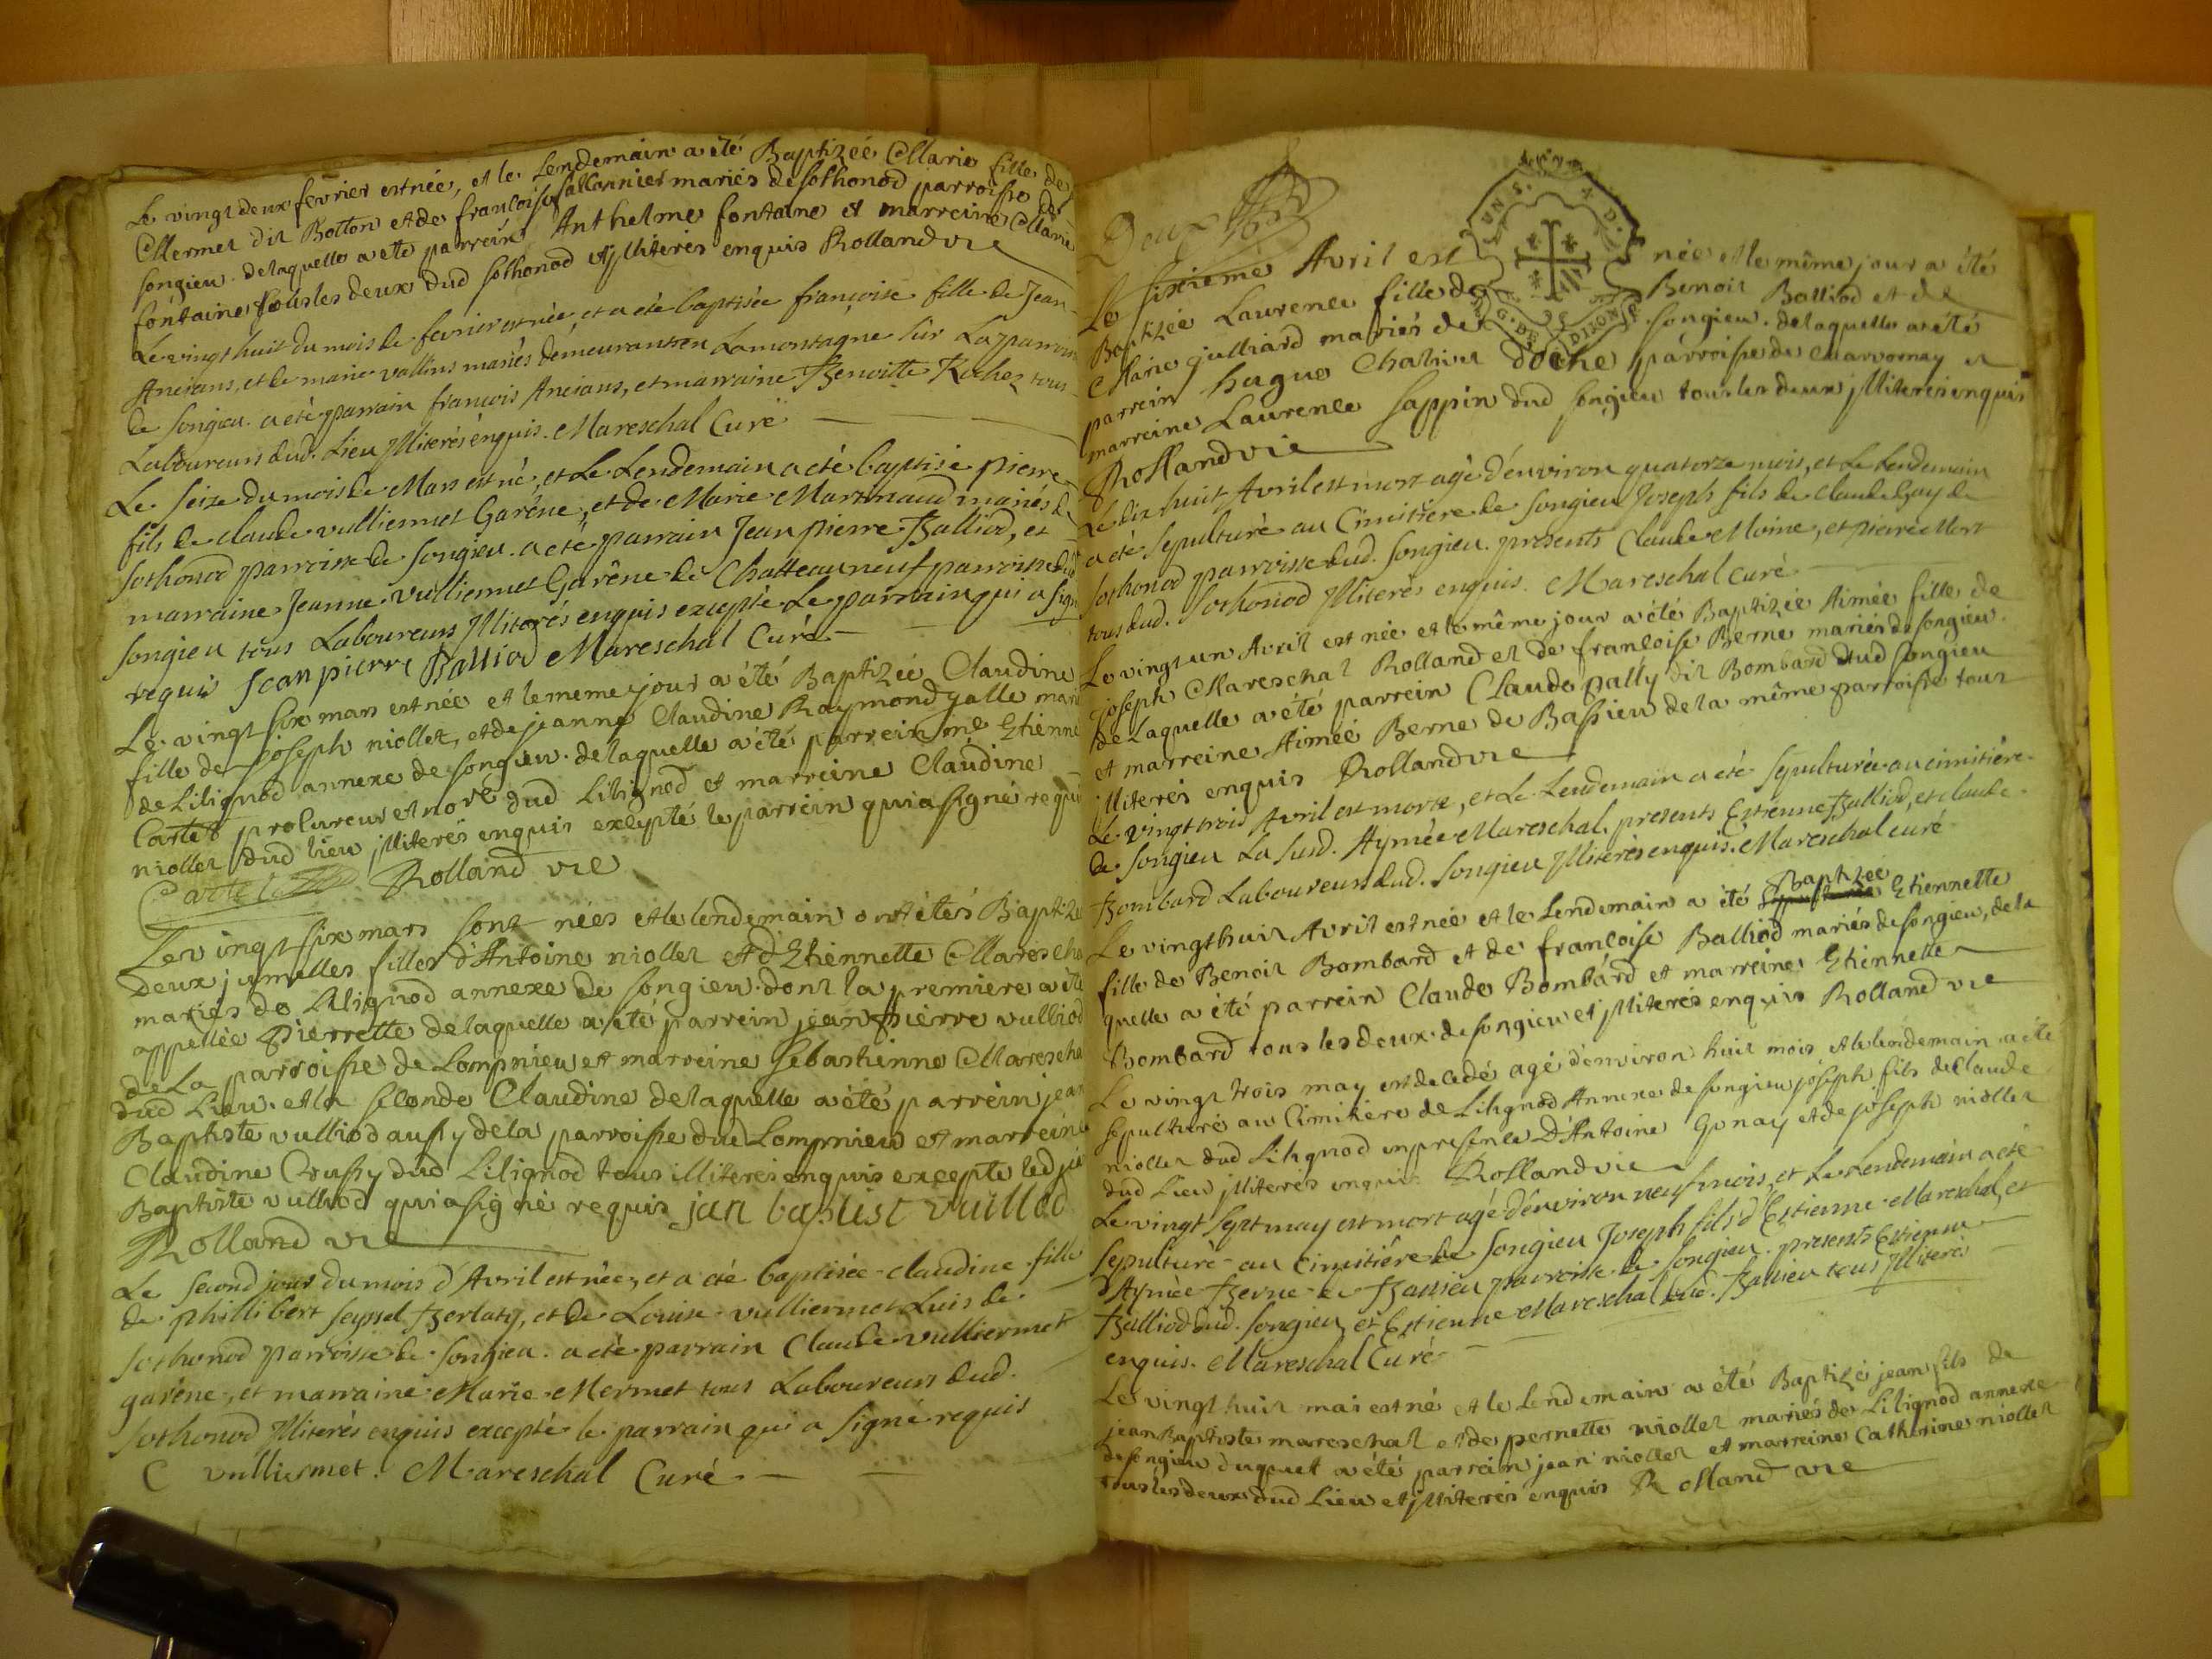 Le vingt deux fevrier est née, et le lendemain a été Baptizée Marie fille de
Mermet dit Botton et de françoise Sallonnier mariés de sothonod parroisse de
songieu. de laquelle a été parrein Anthelme fontaine et marreine Marie
fontaine tous les deux dud sothonod et jlliterés enquis Rolland vie
Le vingt huit du mois de fevrier est née, et a été baptisée françoise fille de Jean
Ancians, et de marie vallins mariés demeurants en Lamontagne sur La parroisse
de songieu. a été parrain francois Ancians, et marraine Benoitte Rochez tous
Laboureurs dud. Lieu Jlliterés enquis. Mareschal Curé
Le seize du mois de Mars est né, et Le Lendemain a été baptisé pierre
fils de claude vulliermet Garêne, et de Marie Martinaud mariés de
sothonod parroisse de songieu. a été parrain Jean pierre Balliod, et
marraine Jeanne vulliermet Garêne de Chatteauneuf parroisse dud
songieu tous Laboureurs Jlliterés enquis excepté Le parrain qui a signé
requis Jean pierre Balliod Mareschal Curé
Le vingt six mars est née et le meme jour a été Baptizée Claudine
fille de Joseph niollet, et de jeanne Claudine Raymond galle mariés
de Lilignod annexe de songieu. de laquelle a été parrein me Etienne
Cartet procureur et nore dud Lilignod et marreine Claudine
niollet dud lieu jlliterés enquis excepté le parrein qui a signé requis
Cartet Rolland vie
Le vingt six mars sont nées et le lendemain ont étés Baptizé
deux jumelles filles d'Antoine niollet et d'Etiennette Marescha
mariés de Lilignod annexe de songieu. dont la premiere a été
appellée Pierrette de laquelle a été parrein jean Pierre vulliod
de La parroisse de Lompnieu et marreine sebastienne Marescha
dud Lieu. et la seconde Claudine de laquelle a été parrein jean
Baptiste vulliod aussy de la parroisse dud Lompnieu et marreine
Claudine Crussy dud Lilignod tous illiterés enquis excepte led jea
Baptiste vulliod qui a signé requis jan baptist vulliod
Rolland vie
Le second jour du mois d'Avril est née, et a été baptisée claudine fille
de phillibert seyssel Berlaty, et de Louise vulliermet Luis de
sothonod parroisse de songieu. a été parrain Claude vulliermet
garêne, et marraine Marie Mermet tous Laboureurs dud.
sothonod Jlliterés enquis excepté le parrain qui a signé requis
C vulliermet. Mareschal Curé
Deux
Le sixieme Avril est née et le même jour a été
Baptizée Laurence fille de Benoit Balliod et de
Marie julliard mariés de songieu. de laquelle a été
parrein hugue Chabiet doche parroisse de charvornay et
marreine Laurence sappin dud songieu tous les deux jlliterés enquis
Rolland vie
UNS. 4 D. G. DE DIJON
Le dix huit Avril est mort agé d'environ quatorze mois, et Le Lendemain
a été sepulturé au Cimitiere de songieu Joseph fils de claude Gay de
sothonod parroisse dud. songieu. presents Claude Moine, et pierre Mort
tous dud. sothonod Jlliterés enquis. Mareschal curé
Le vingt un Avril est née et le même jour a été Baptizée Aimée fille de
joseph Mareschal Rolland et de françoise Berne mariés de songieu.
de Laquelle a été parrein Claude pally dit Bombard dud songieu
et marreine Aimée Berne de Bassieu de la même parroisse tous
jlliterés enquis Rolland vie
Le vingt trois Avril est morte, et Le Lendemain a été sepulturée au cimitière
de songieu La susd. Aymée Mareschal. presents Estienne Balliod, et claude
Bombard Laboureurs dud. songieu Jlliterés enquis. Mareschal curé
Le vingt huit Avril est née et le lendemain a été Baptizée Etiennette
fille de Benoit Bombard et de françoise Balliod mariés de songieu, de la
quelle a été parrein Claude Bombard et marreine Etiennette
Bombard tous les deux de songieu et jlliterés enquis Rolland vie
Le vingt trois may est decedé agé d'environ huit mois et le lendemain a été
sepulturé au Cimitiere de Lilignod Annexe de songieu joseph fils de Claude
niollet dud Lilignod en presence d'Antoine Gonay et de joseph niollet
dud Lieu jlliterés enquis Rolland vie
Le vingt sept may est mort agé d'environ neuf mois, et Le Lendemain a été
sepulturé au Cimitière de songieu Joseph fils d'Estienne Mareschal, et
d'Aymée Berne de Bassieu parroisse de songieu. presents Estienne
Balliod dud. songieu, et Estienne Mareschal dud. Bassieu tous Jlliterés
enquis. Mareschal Curé
Le vingt huit mai est né et le lendemain a été Baptizé jean fils de
jean Baptiste mareschal et de pernette niollet mariés de Lilignod annexe
de songieu duquel a été parrein jean niollet et marreine Catherine niollet
tous les deux dud Lieu et jlliterés enquis Rolland vie